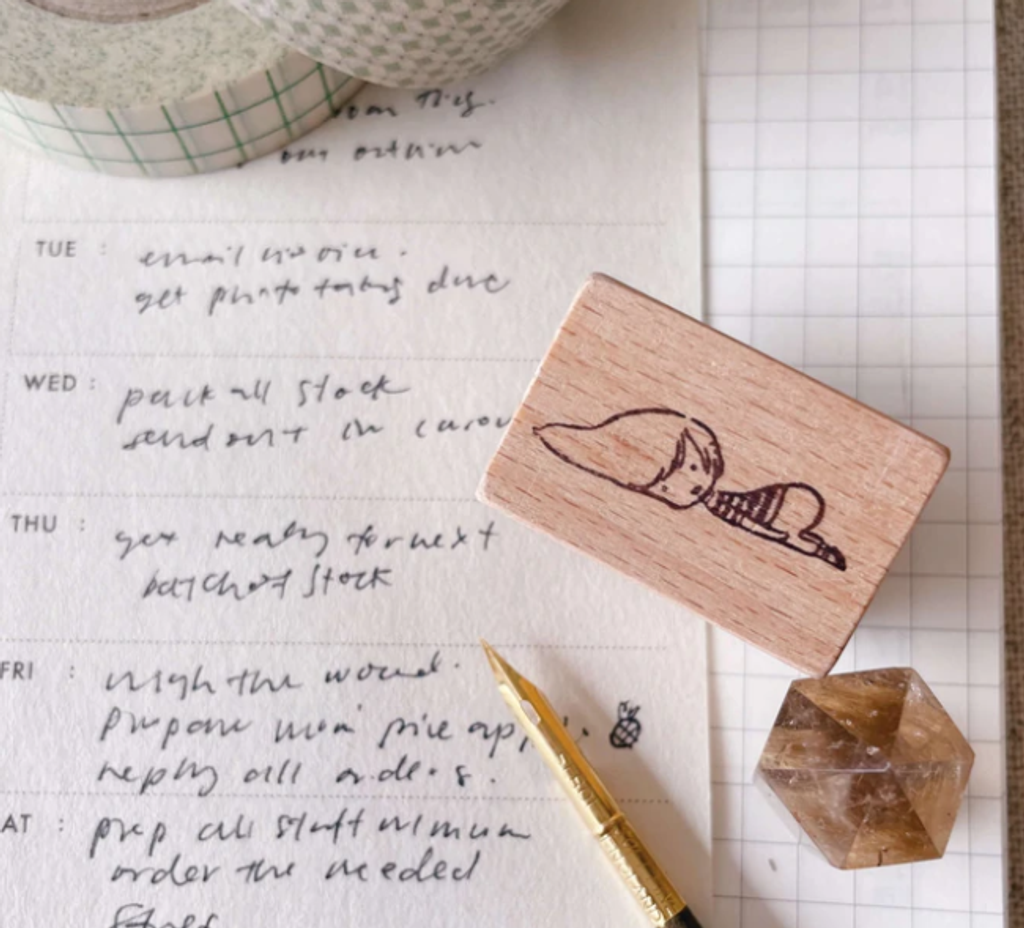 our
TUE :
email invoice.
get photo taking due
WED :
pack all stock
send out in
THU :
get ready for next
batch of stock
FRI :
weigh the wound.
prepare mini pine
reply all orders.
AT :
prep all stuff
order the needed